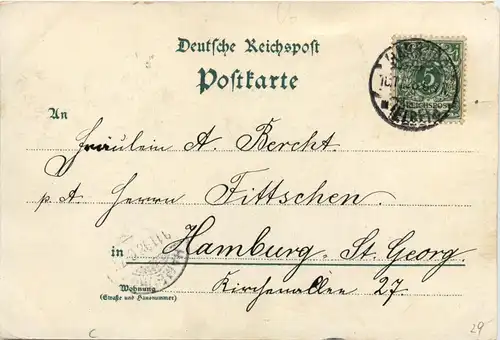 Deutsche Reichspost
Postkarte
5
REICHSPOST
An
Fräulein A. Bercht
p. A Herrn Fittschen.
in Hamburg. St. Georg.
Kirchenallee 27.
Wohnung
(Straße und Hausnummer)
C
29